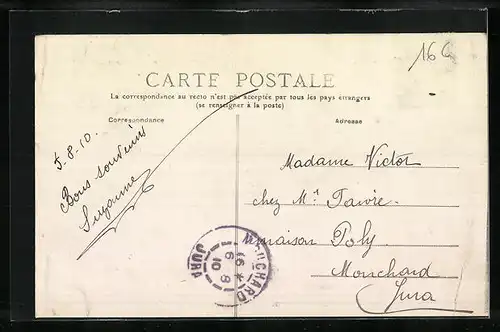 16
CARTE POSTALE
La correspondance au recto n'est pas acceptée par tous les pays étrangers
(se renseigner à la poste)
Correspondance
Adresse
5-8-10.
Bons souvenirs
Suzanne
Madame Victor
chez Mr Favre.
maison Poly
Mouchard
Jura
MOUCHARD
6 8
10
JURA